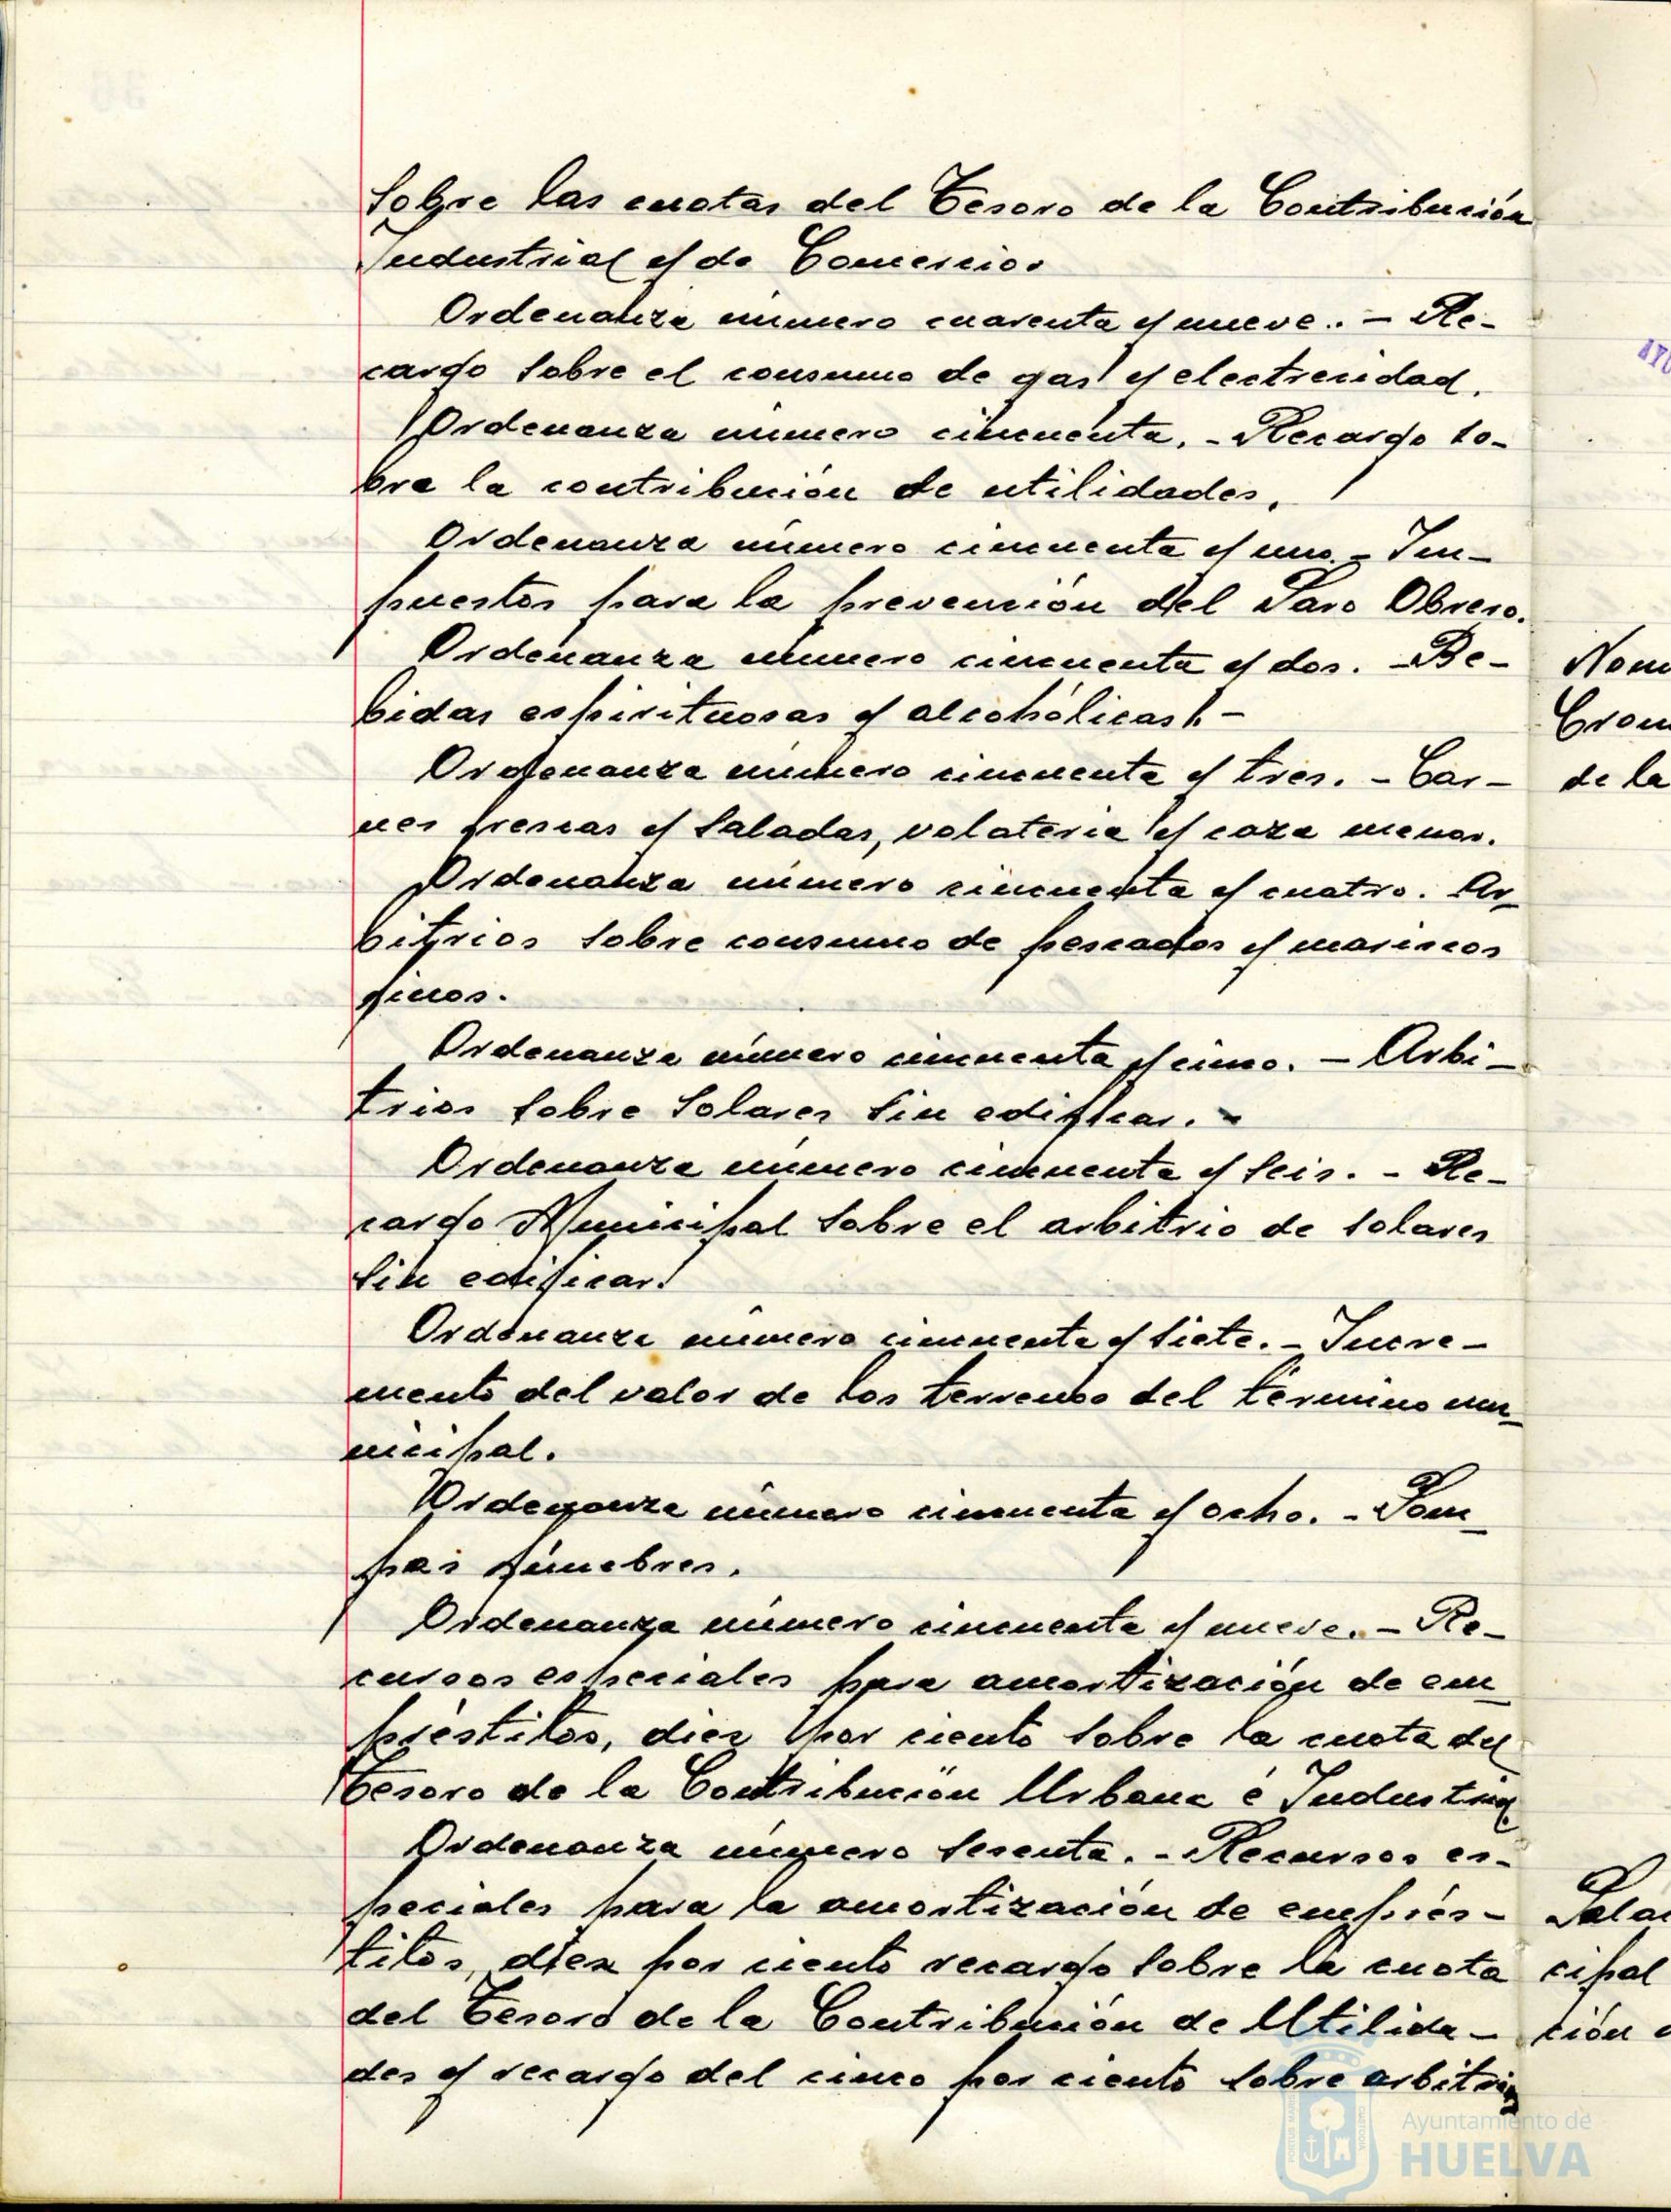 sobre las cuotas del Tesoro de la Contribución
Industrial y de Comercio.
Ordenanza número cuarenta y nueve. - Re-
cargo sobre el consumo de gas y electricidad.
Ordenanza número cincuenta. - Recargo so-
bre la contribución de utilidades.
Ordenanza número cincuenta y uno. - Im-
puestos para la prevención del Paro Obrero.
Ordenanza número cincuenta y dos. - Be-
bidas espirituosas y alcohólicas. -
Ordenanza número cincuenta y tres. - Car-
nes frescas y saladas, volateria y caza menor.
Ordenanza número cincuenta y cuatro. Ar-
bitrios sobre consumo de pescados y mariscos
finos.
Ordenanza número cincuenta y cinco. - Arbi-
trios sobre solares sin edificar. -
Ordenanza número cincuenta y seis. - Re-
cargo Municipal sobre el arbitrio de solares
sin edificar.
Ordenanza número cincuenta y siete. - Incre-
mento del valor de los terrenos del término mu-
nicipal.
Ordenanza número cincuenta y ocho. - Pom-
pas fúnebres.
Ordenanza número cincuenta y nueve. - Re-
cursos especiales para amortización de em-
préstitos, diez por ciento sobre la cuota del
Tesoro de la Contribución Urbana é Industrial
Ordenanza número sesenta. - Recursos es-
peciales para la amortización de emprés-
titos, diez por ciento recargo sobre la cuota
del Tesoro de la Contribución de Utilida-
des y recargo del cinco por ciento sobre arbitrios
Nom
Crom
de la
cipal
ción
Ayuntamiento de
HUELVA